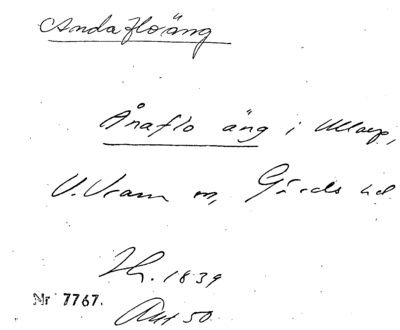 Andafloäng
Ånaflo äng i Ullarp,
V. Vram sn, Gärds hd
Th. 1839
Nr 7767.
Akt 50